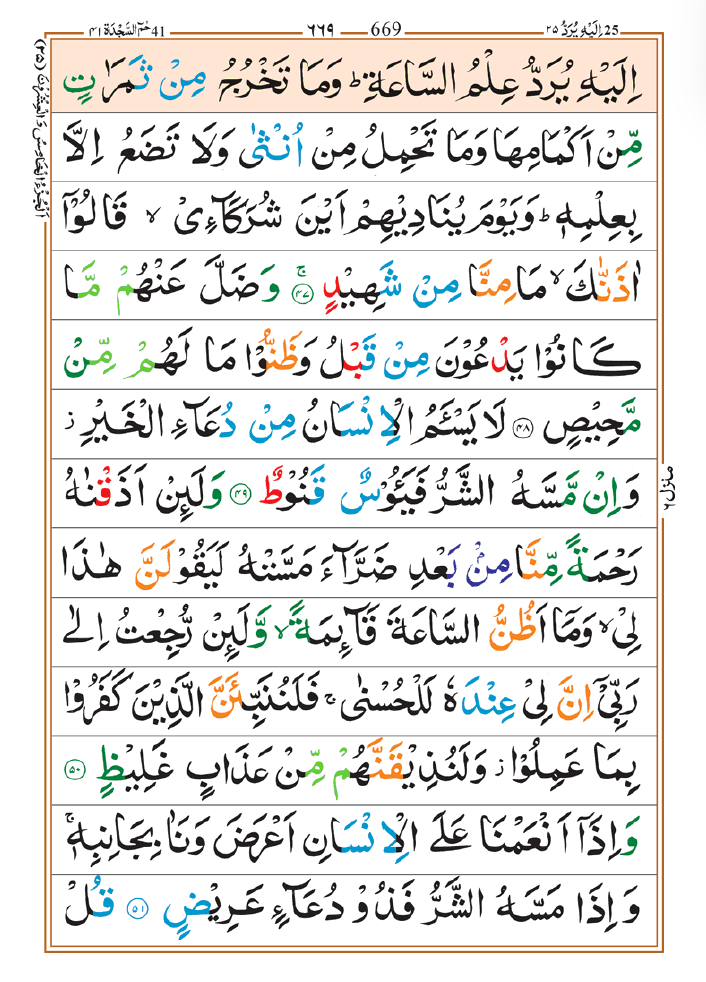 25 اِلَيْهِ يُرَدُّ ٢٥
669 ٦٦٩
41 حٰمٓ السَّجْدَة ٤١
اِلَيْهِ يُرَدُّ عِلْمُ السَّاعَةِ ؕ وَمَا تَخْرُجُ مِنْ ثَمَرٰتٍ
مِّنْ اَكْمَامِهَا وَمَا تَحْمِلُ مِنْ اُنْثٰى وَلَا تَضَعُ اِلَّا
بِعِلْمِهٖ ؕ وَيَوْمَ يُنَادِيْهِمْ اَيْنَ شُرَكَآءِيْ ۙ قَالُوْۤا
اٰذَنّٰكَ ۙ مَا مِنَّا مِنْ شَهِيْدٍ ۚ ﴿٤٧﴾ وَضَلَّ عَنْهُمْ مَّا
كَانُوْا يَدْعُوْنَ مِنْ قَبْلُ وَظَنُّوْا مَا لَهُمْ مِّنْ
مَّحِيْصٍ ﴿٤٨﴾ لَا يَسْـَٔمُ الْاِنْسَانُ مِنْ دُعَآءِ الْخَيْرِ ؗ
وَاِنْ مَّسَّهُ الشَّرُّ فَيَـُٔوْسٌ قَنُوْطٌ ﴿٤٩﴾ وَلَىِٕنْ اَذَقْنٰهُ
رَحْمَةً مِّنَّا مِنْۢ بَعْدِ ضَرَّآءَ مَسَّتْهُ لَيَقُوْلَنَّ هٰذَا
لِيْ ۙ وَمَاۤ اَظُنُّ السَّاعَةَ قَآىِٕمَةً ۙ وَّلَىِٕنْ رُّجِعْتُ اِلٰى
رَبِّيْۤ اِنَّ لِيْ عِنْدَهٗ لَلْحُسْنٰى ۚ فَلَنُنَبِّئَنَّ الَّذِيْنَ كَفَرُوْا
بِمَا عَمِلُوْا ؗ وَلَنُذِيْقَنَّهُمْ مِّنْ عَذَابٍ غَلِيْظٍ ﴿٥٠﴾
وَاِذَاۤ اَنْعَمْنَا عَلَى الْاِنْسَانِ اَعْرَضَ وَنَاٰ بِجَانِبِهٖ ۚ
وَاِذَا مَسَّهُ الشَّرُّ فَذُوْ دُعَآءٍ عَرِيْضٍ ﴿٥١﴾ قُلْ
اَلْجُزْءُ الْخَامِسُ وَ الْعِشْرُوْنَ (٢٥)
منزل ٦